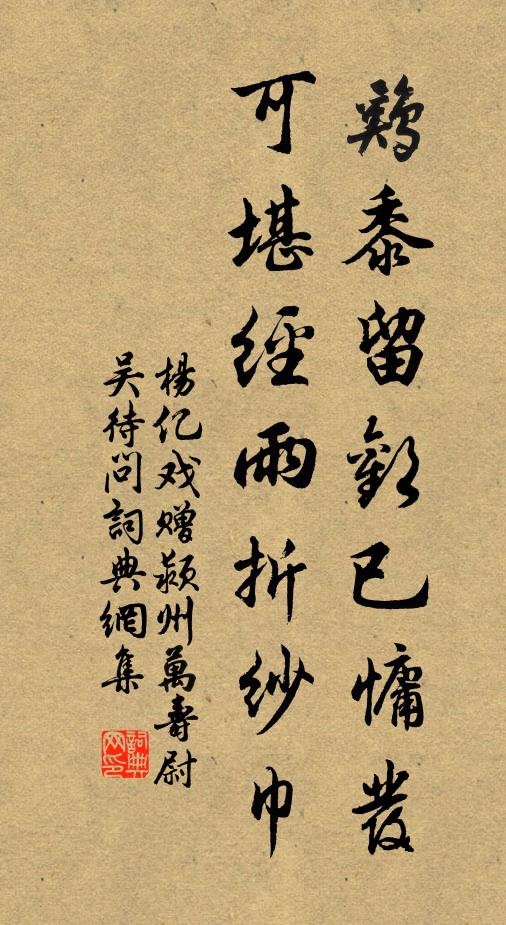 鷄黍留歡已慵發
可堪經雨折紗巾
楊亿戏赠颍州萬壽尉
吴待问詞典網集
詞典网印